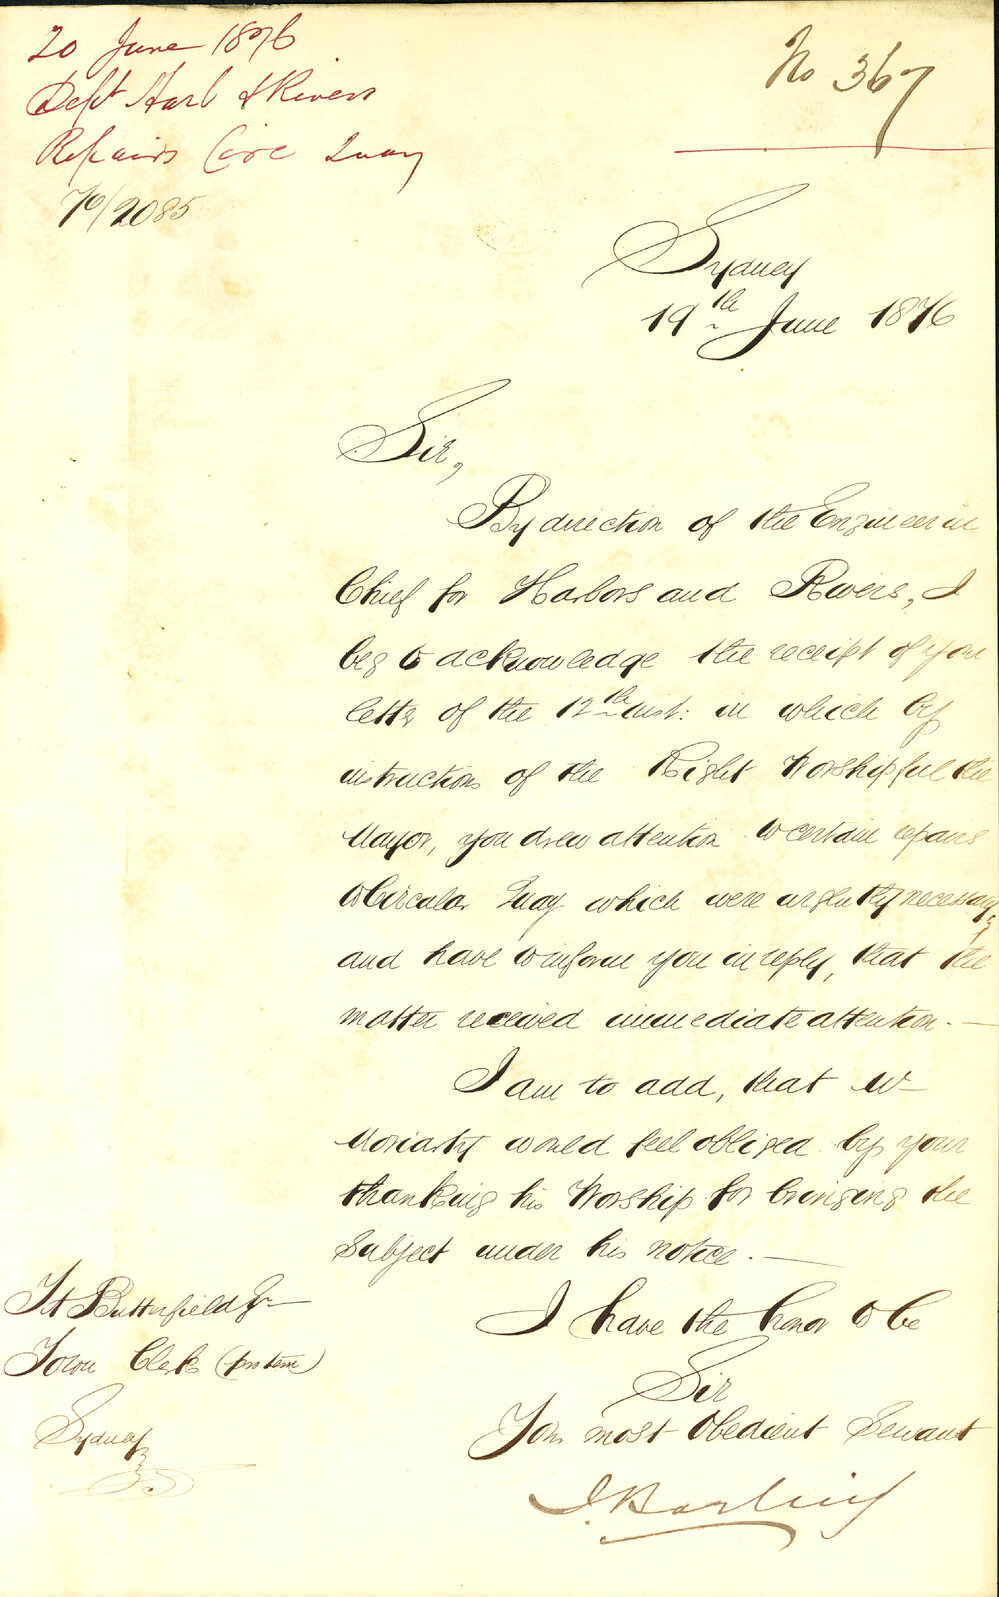 20 June 1876
Dept Harb & Rivers
Repairs Circ Quay
76/2085
No 367
Sydney
19th June 1876
Sir,
By direction of the Engineer in
Chief for Harbors and Rivers, I
beg to acknowledge the receipt of your
letter of the 12th inst: in which by
instructions of the Right Worshipful the
Mayor, you drew attention to certain repairs
to Circular Quay which were urgently necessary,
and have to inform you in reply, that the
matter received immediate attention. —
I am to add, that Mr
Moriarty would feel obliged by your
thanking his Worship for bringing the
Subject under his notice. —
I have the honor to be
Sir
Your most Obedient Servant
Butterfield Esqr
Town Clerk (pro tem)
Sydney